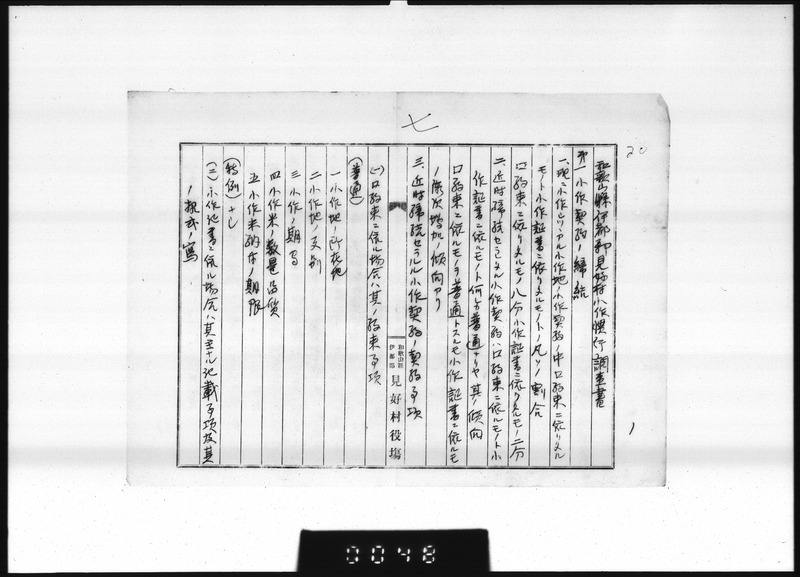 七
20
1
和歌山縣伊都郡見好村小作慣行調査書
第一 小作契約ノ締結
一、現ニ小作シツヽアル小作地ノ小作契約ノ中口約束ニ依リタル
モノト小作証書ニ依リタルモノトノ凡ソノ割合
口約束ニ依リタルモノ八分小作証書ニ依リタルモノ二分
二、近時締結セラレタル小作契約ハ口約束ニ依ルモノト小
作証書ニ依ルモノト何レカ普通ナリヤ其ノ傾向
口約束ニ依ルモノヲ普通トスルモ小作証書ニ依ルモ
ノ漸次増加ノ傾向アリ
三、近時締結セラルル小作契約ノ契約事項
和歌山縣
伊都郡
見好村役場
(一)口約束ニ依ル場合ハ其ノ約束事項
(普通)
一 小作地ノ所在地
二 小作地ノ反別
三 小作ノ期間
四 小作米ノ数量品質
五 小作米納付ノ期限
(特例) ナシ
(二)小作証書ニ依ル場合ハ其主ナル記載事項及其
ノ様式ノ寫
0048